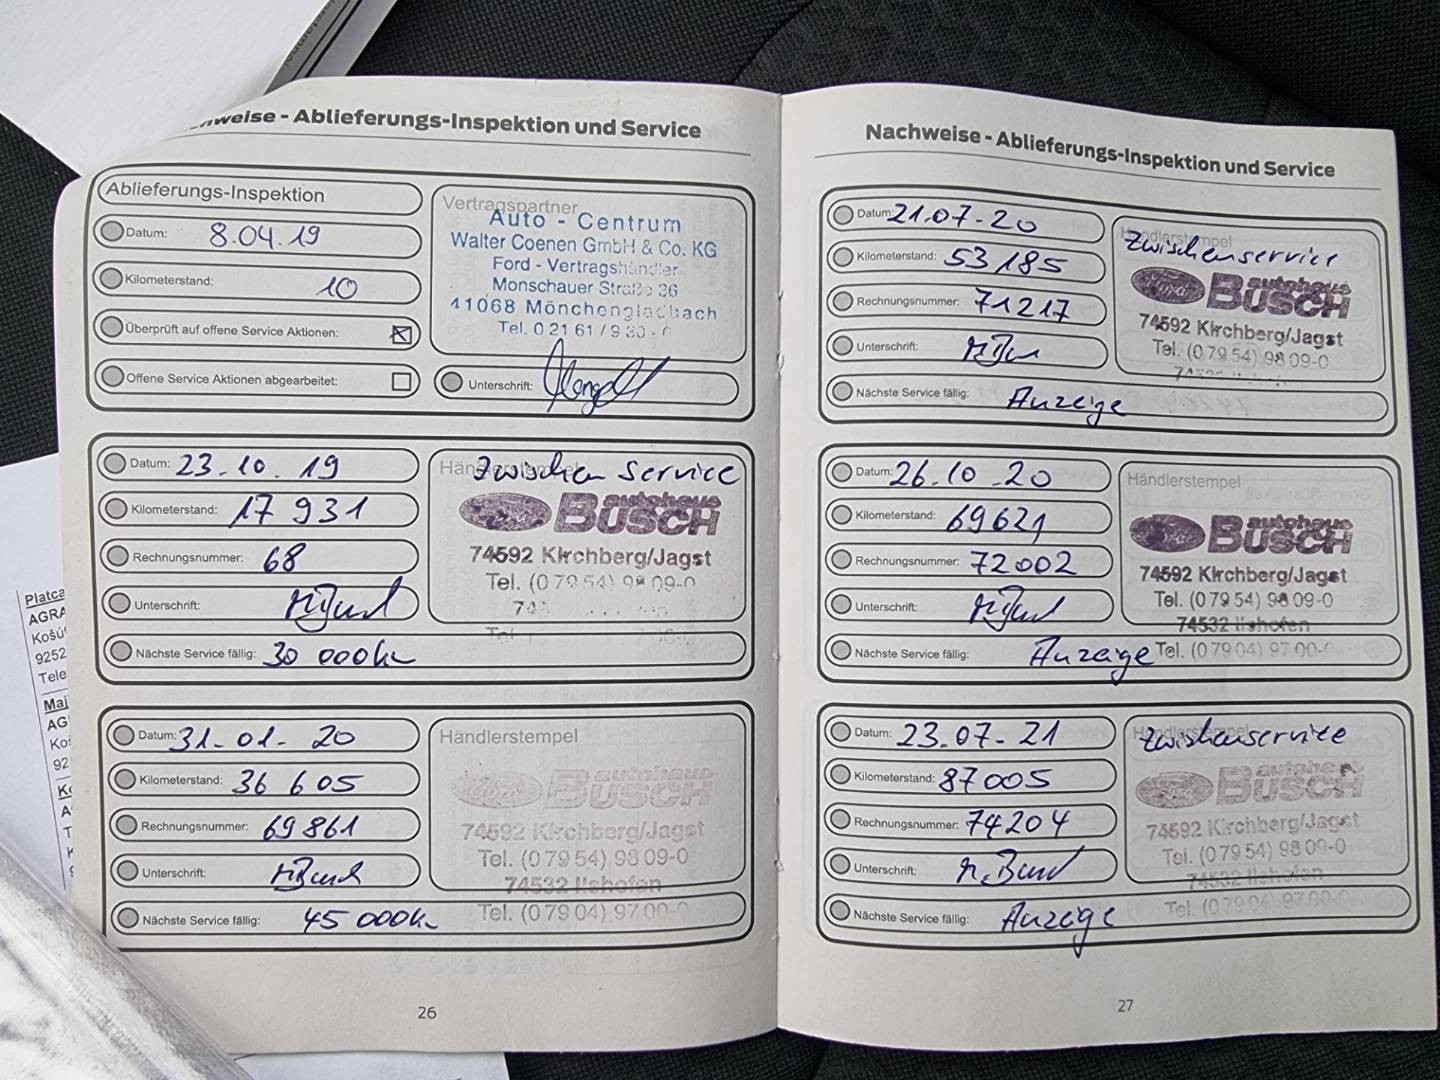 Nachweise - Ablieferungs-Inspektion und Service
Ablieferungs-Inspektion
Datum: 8.04.19
Kilometerstand: 10
Überprüft auf offene Service Aktionen:
Offene Service Aktionen abgearbeitet:
Vertragspartner
Auto - Centrum
Walter Coenen GmbH & Co. KG
Ford - Vertragshändler
Monschauer Straße 36
41068 Mönchengladbach
Tel. 0 21 61 / 9 30 -
Unterschrift:
Datum: 23.10.19
Kilometerstand: 17 931
Rechnungsnummer: 68
Unterschrift:
Nächste Service fällig: 30 000km
Händlerstempel
Zwischen service
autohaus
BUSCH
74592 Kirchberg/Jagst
Tel. (0 79 54) 98 09-0
Tel.
Datum: 31-01-20
Kilometerstand: 36 605
Rechnungsnummer: 69861
Unterschrift:
Nächste Service fällig: 45 000km
Händlerstempel
autohaus
BUSCH
74592 Kirchberg/Jagst
Tel. (0 79 54) 98 09-0
74532 Ilshofen
Tel. (0 79 04) 97 00-0
26
Nachweise - Ablieferungs-Inspektion und Service
Datum: 21.07-20
Kilometerstand: 53185
Rechnungsnummer: 71217
Unterschrift:
Nächste Service fällig: Anzeige
Händlerstempel
Zwischenservice
autohaus
BUSCH
74592 Kirchberg/Jagst
Tel. (0 79 54) 98 09-0
Datum: 26.10.20
Kilometerstand: 69621
Rechnungsnummer: 72002
Unterschrift:
Nächste Service fällig: Anzeige
Händlerstempel
autohaus
BUSCH
74592 Kirchberg/Jagst
Tel. (0 79 54) 98 09-0
74532 Ilshofen
Tel. (0 79 04) 97 00-0
Datum: 23.07-21
Kilometerstand: 87005
Rechnungsnummer: 74204
Unterschrift:
Nächste Service fällig: Anzeige
Händlerstempel
Zwischenservice
autohaus
BUSCH
74592 Kirchberg/Jagst
Tel. (0 79 54) 98 09-0
74532 Ilshofen
Tel. (0 79 04) 97 00-0
27